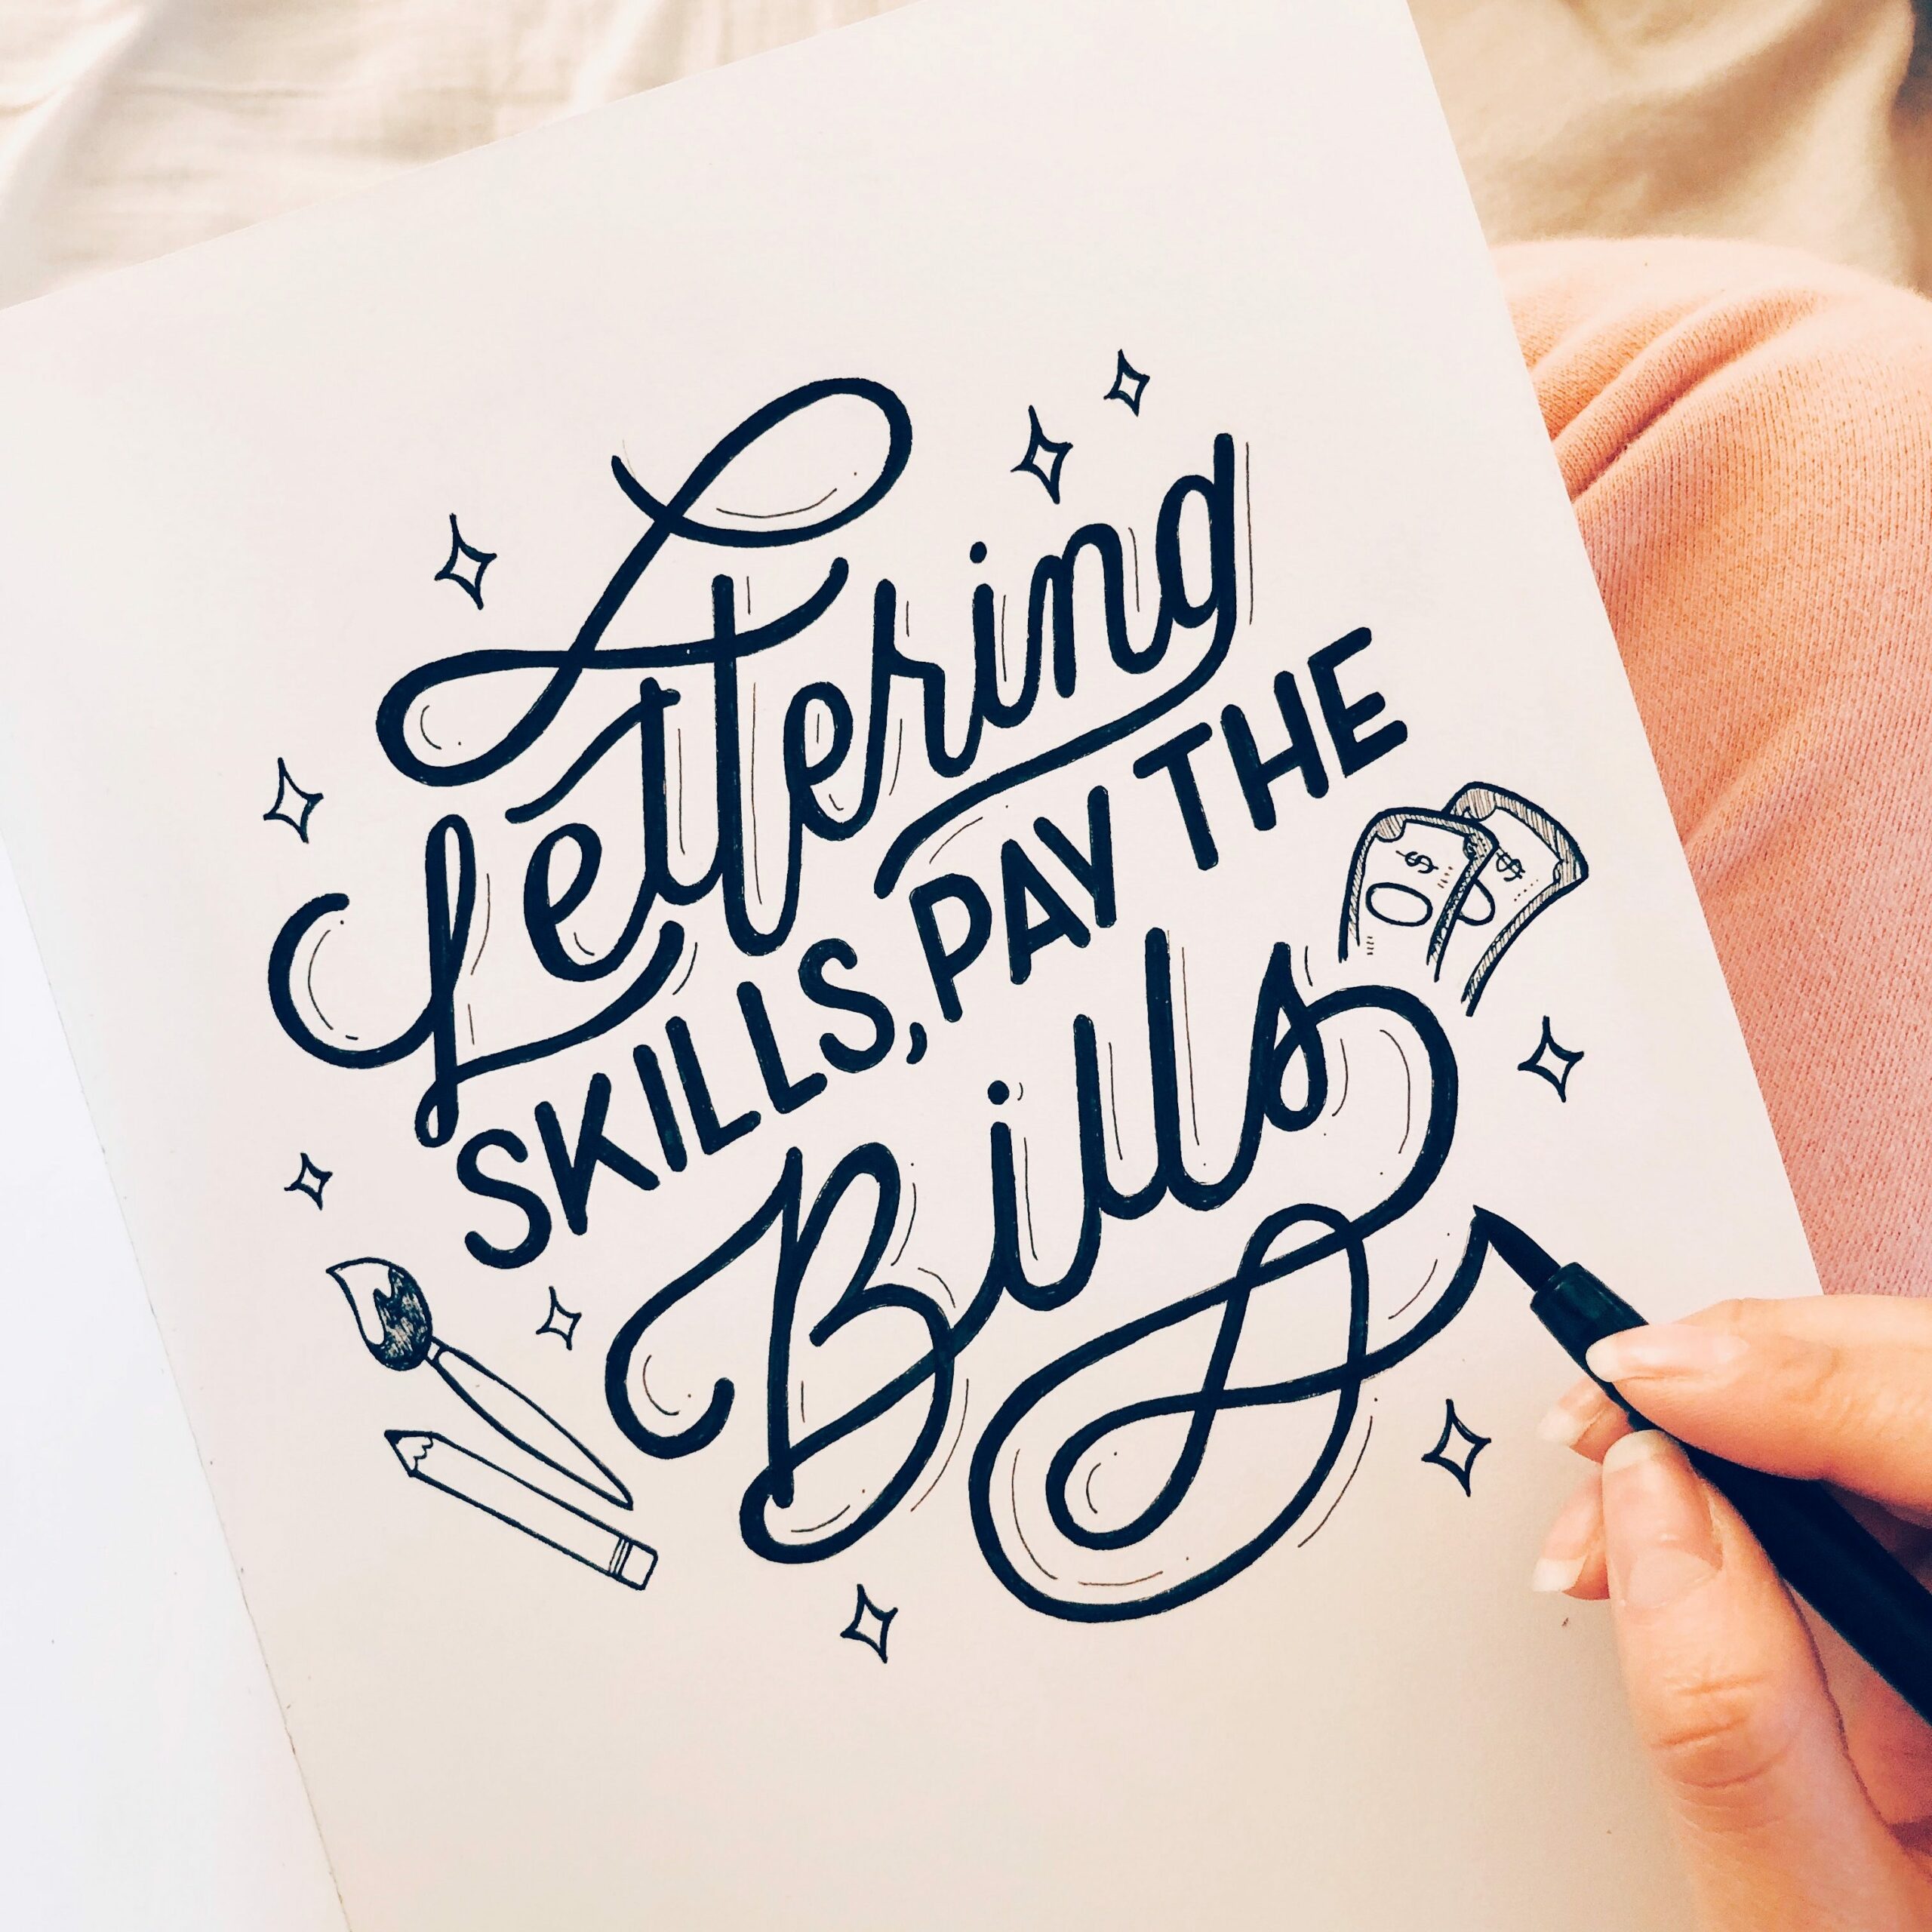 Lettering
SKILLS, PAY THE
Bills
$ $